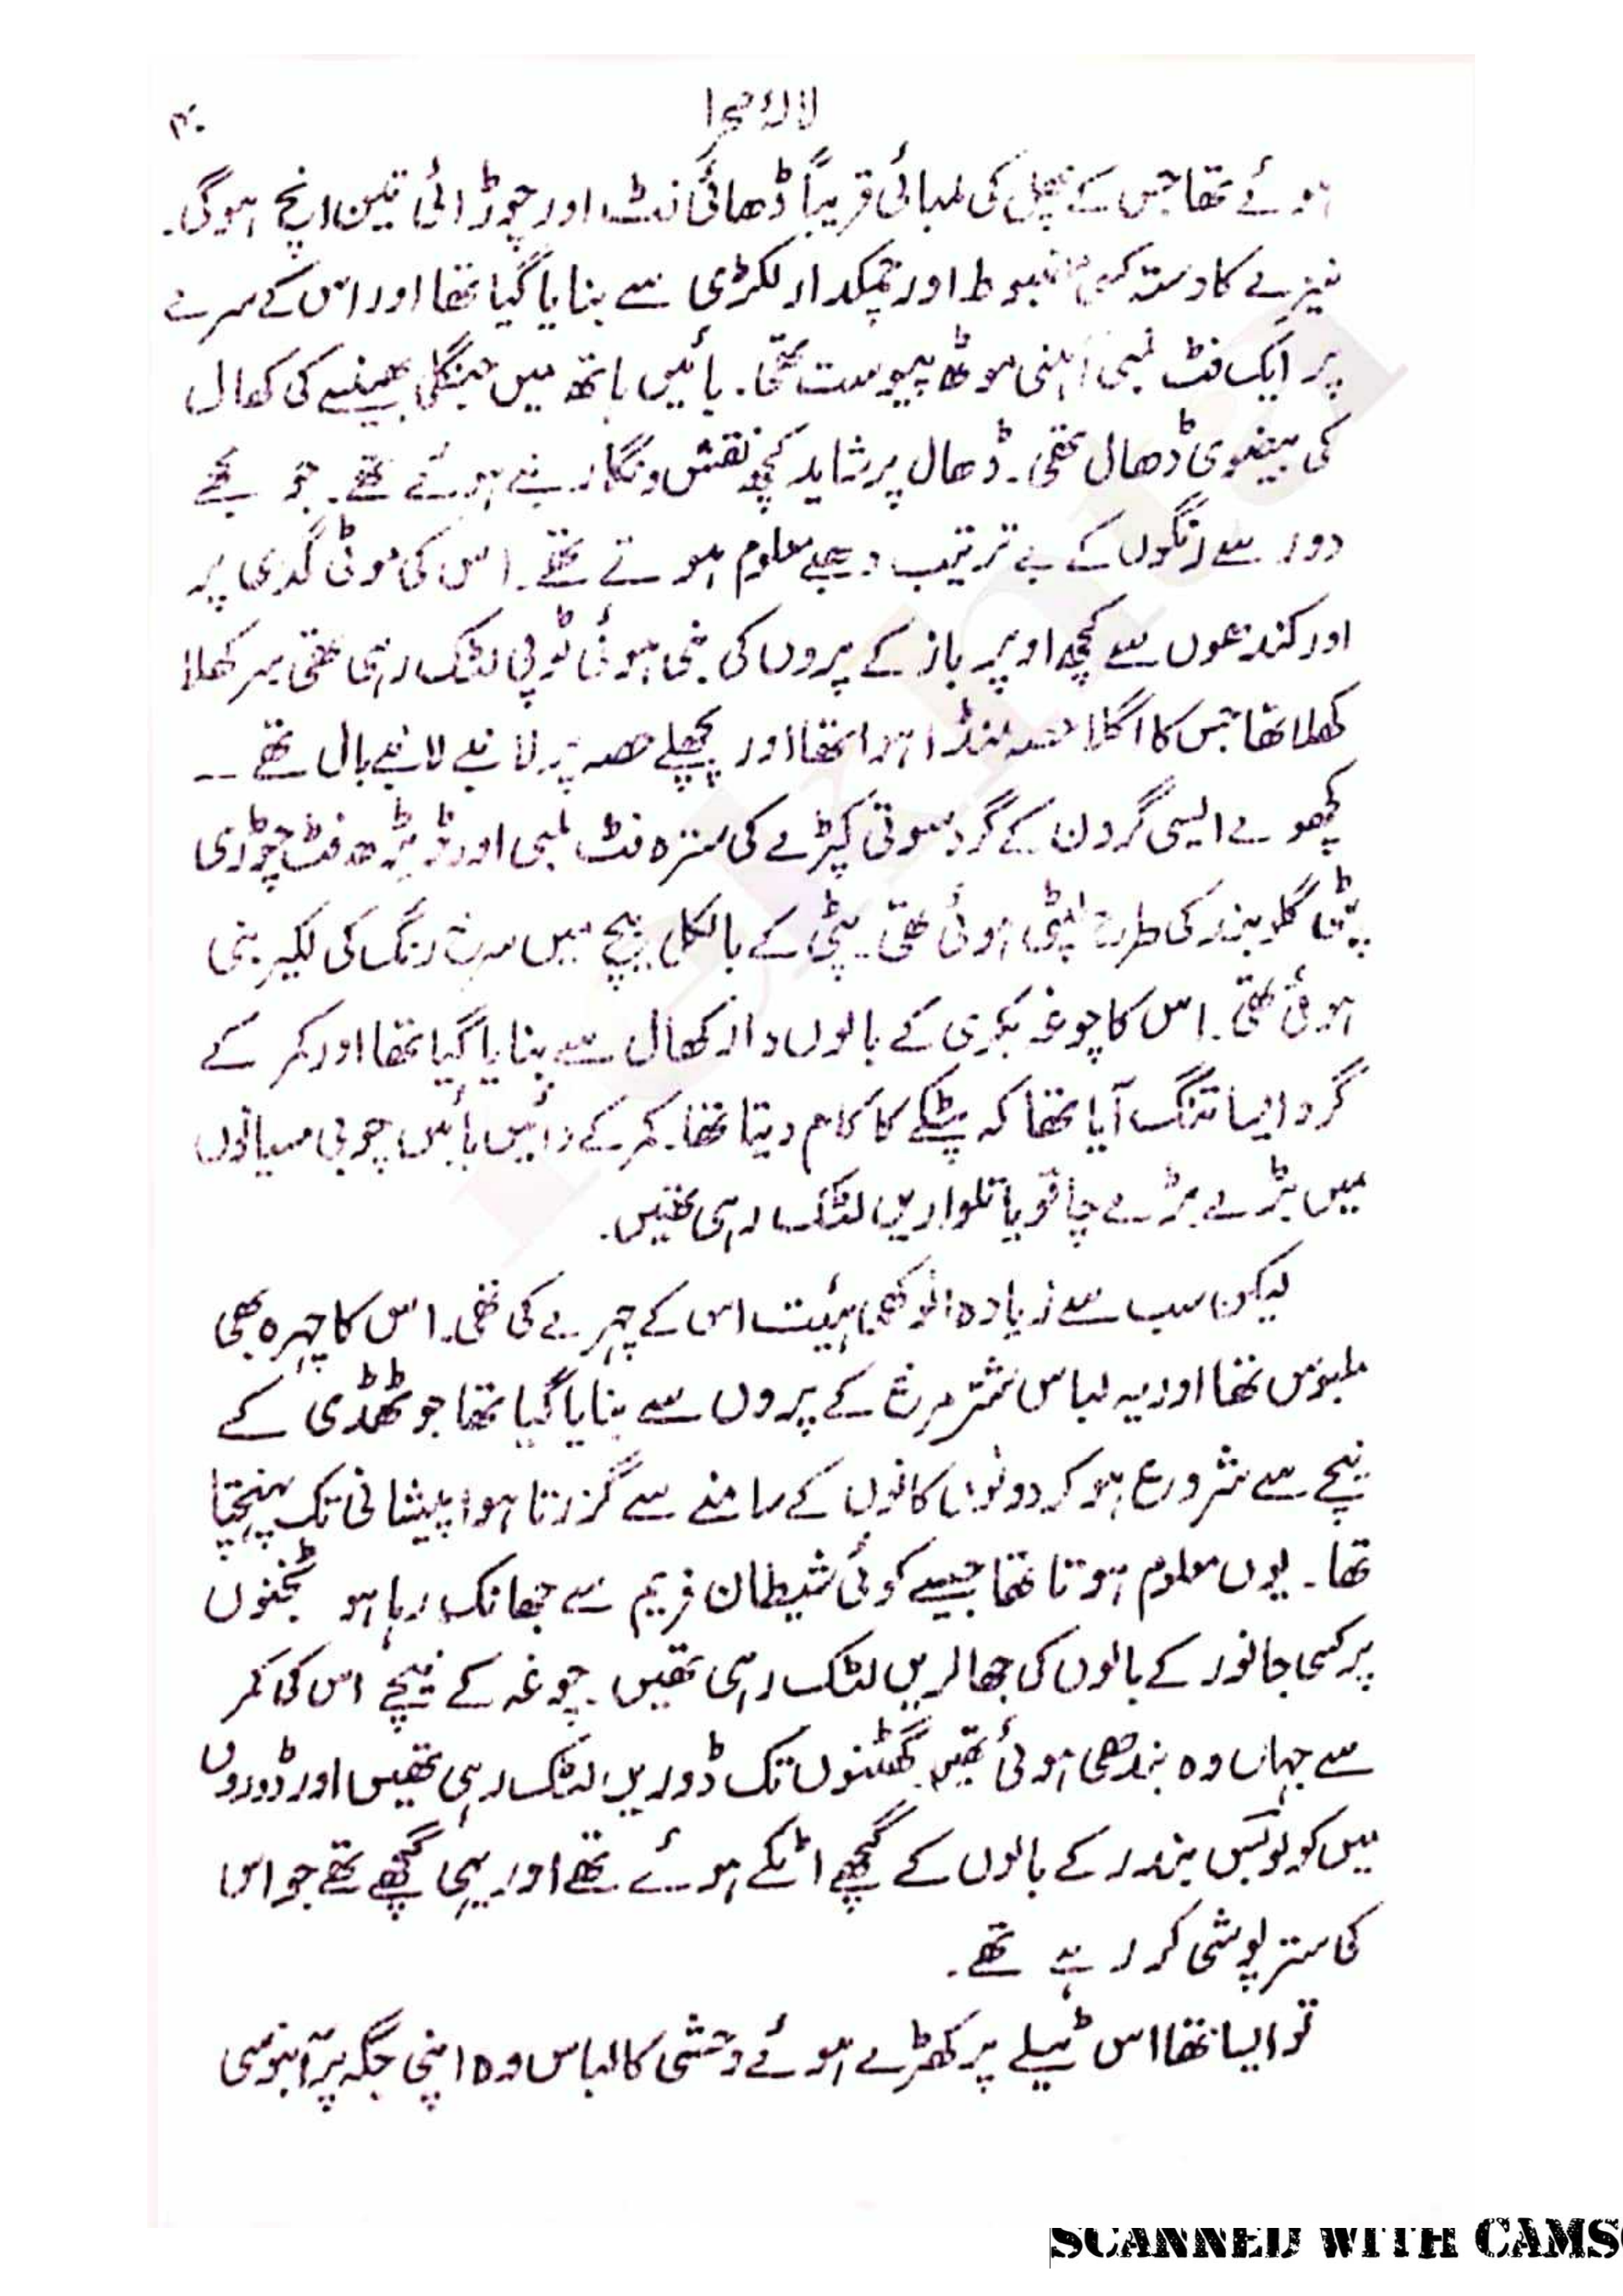 لالۂ صحرا
۴۰
ہوئے تھا جس کے پھل کی لمبائی قریباً ڈھائی فٹ اور چوڑائی تین انچ ہوگی۔
نیزے کا دستہ کسی مضبوط اور چمکدار لکڑی سے بنایا گیا تھا اور اس کے سرے
پر ایک فٹ لمبی آہنی موٹھ پیوست تھی۔ بائیں ہاتھ میں جنگلی بھینسے کی کھال
کی بیضوی ڈھال تھی۔ ڈھال پر شاید کچھ نقش و نگار بنے ہوئے تھے۔ جو مجھے
دور سے رنگوں کے بے ترتیب دھبے معلوم ہوتے تھے۔ اس کی موٹی گدی پر
اور کندھوں سے کچھ اوپر باز کے پروں کی بنی ہوئی ٹوپی لٹک رہی تھی سر کھلا
کھلا تھا جس کا اگلا حصہ منڈا ہوا تھا اور پچھلے حصہ پر لانبے لانبے بال تھے ــ
کچھوے ایسی گردن کے گرد سوتی کپڑے کی سترہ فٹ لمبی اور ڈیڑھ فٹ چوڑی
پٹی گلوبند کی طرح لپٹی ہوئی تھی۔ پٹی کے بالکل بیچ میں سرخ رنگ کی لکیر بنی
ہوئی تھی۔ اس کا چوغہ بکری کے بالوں دار کھال سے بنایا گیا تھا اور کمر کے
گرد ایسا تنگ آیا تھا کہ پٹکے کا کام دیتا تھا۔ کمر کے دائیں بائیں چوبی میانوں
میں بڑے بڑے چاقو یا تلواریں لٹک رہی تھیں۔
لیکن سب سے زیادہ انوکھی ہیئت اس کے چہرے کی تھی۔ اس کا چہرہ بھی
ملبوس تھا اور یہ لباس شتر مرغ کے پروں سے بنایا گیا تھا جو ٹھڈی کے
نیچے سے شروع ہو کر دونوں کانوں کے سامنے سے گزرتا ہوا پیشانی تک پہنچتا
تھا۔ یوں معلوم ہوتا تھا جیسے کوئی شیطان فریم سے جھانک رہا ہو ٹخنوں
پر کسی جانور کے بالوں کی جھالریں لٹک رہی تھیں۔ چوغہ کے نیچے اس کی کمر
سے جہاں وہ بندھی ہوئی تھیں گھٹنوں تک ڈوریں لٹک رہی تھیں اور ڈوروں
میں کولوبس بندر کے بالوں کے گچھے اٹکے ہوئے تھے اور یہی گچھے تھے جو اس
کی ستر پوشی کر رہے تھے۔
تو ایسا تھا اس ٹیلے پر کھڑے ہوئے وحشی کا لباس وہ اپنی جگہ پر آبنوسی
SCANNED WITH CAMS